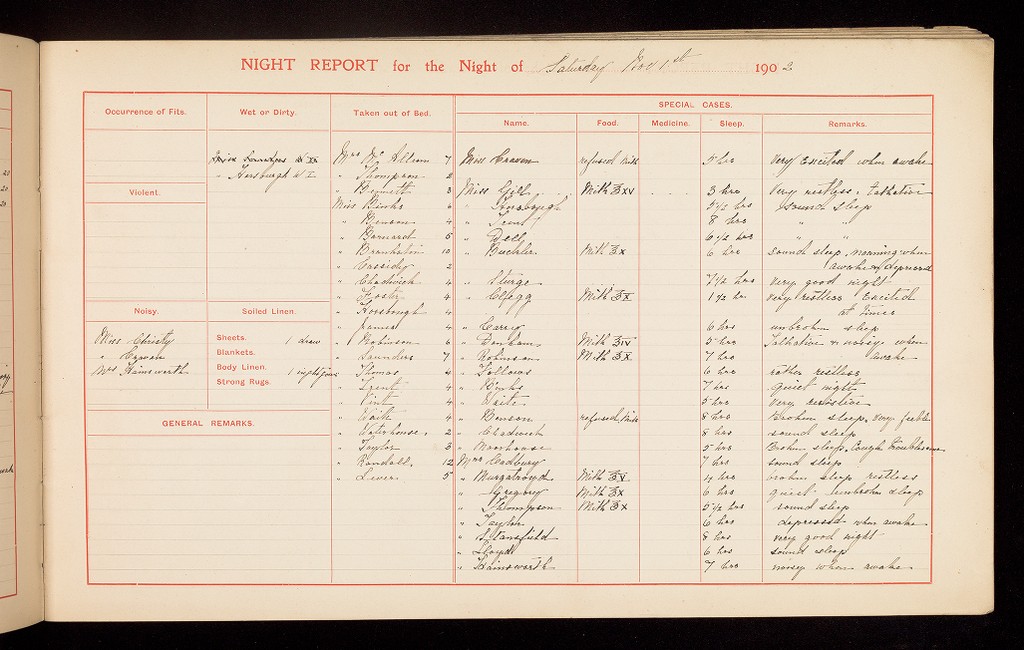 NIGHT REPORT for the Night of Saturday Nov 1st 1902
Occurrence of Fits.
Violent.
Noisy.
Miss Christy
" Craven
Mrs Hainsworth
Wet or Dirty.
Miss Saunders W
" Horsburgh W. I
Soiled Linen.
Sheets. 1 draw
Blankets.
Body Linen. 1 nightgown
Strong Rugs.
GENERAL REMARKS.
Taken out of Bed.
Mrs 7
" Thompson 2
" Bennett 3
Miss Binks 6
" Benson 4
" Barnard 5
" 10
" Cassidy 2
" Chadwick 4
" Foster 4
" Horsburgh 4
" James 4
" Robinson 6
" Saunders 7
" Thomas 4
" Trent 4
" Vint 4
" Waite 4
" Waterhouse. 2
" Taylor 3
" Randall. 12
" Lever 5
SPECIAL CASES.
Name. Food. Medicine. Sleep. Remarks.
Miss Craven refused Milk 5 hrs Very Excited when awake
Miss Gill Milk ℥xv 3 hrs Very restless & talkative
" Horsburgh 5 1/2 hrs sound sleep
" Trent 8 hrs " "
" Dell 6 1/2 hrs " "
" Buckler Milk ℥x 6 hrs sound sleep, moaning when
awake & depressed
" Sturge 7 1/2 hrs Very good night
" Clegg Milk ℥x 1 1/2 hr Very restless Excited
at times
" 6 hrs unbroken sleep
" Denham Milk 5 hrs Talkative & noisy when
awake
" Robinson Milk ℥x 7 hrs
" Fellows 6 hrs rather restless
" Binks 7 hrs quiet night
" Waite 5 hrs Very
" Benson refused Milk 8 hrs Broken sleep, Very feeble
" Chadwick 8 hrs sound sleep
" Moorhouse 5 hrs Broken sleep, Cough troublesome
Mrs Cadbury 7 hrs sound sleep
" Murgatroyd Milk ℥v hrs broken sleep restless
" Gregory Milk ℥x 6 hrs quiet unbroken sleep
" Thompson Milk ℥x 5 1/2 hrs sound sleep
" Taylor 6 hrs depressed when awake
" Stansfield 8 hrs very good night
" Lloyd 6 hrs sound sleep
" Hainsworth 7 hrs noisy when awake